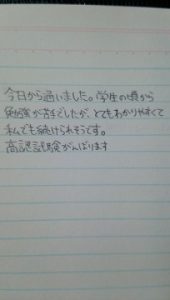 今日から通いました。学生の頃から
勉強が苦手でしたが、とてもわかりやすくて
私でも続けられそうです。
高認試験がんばります